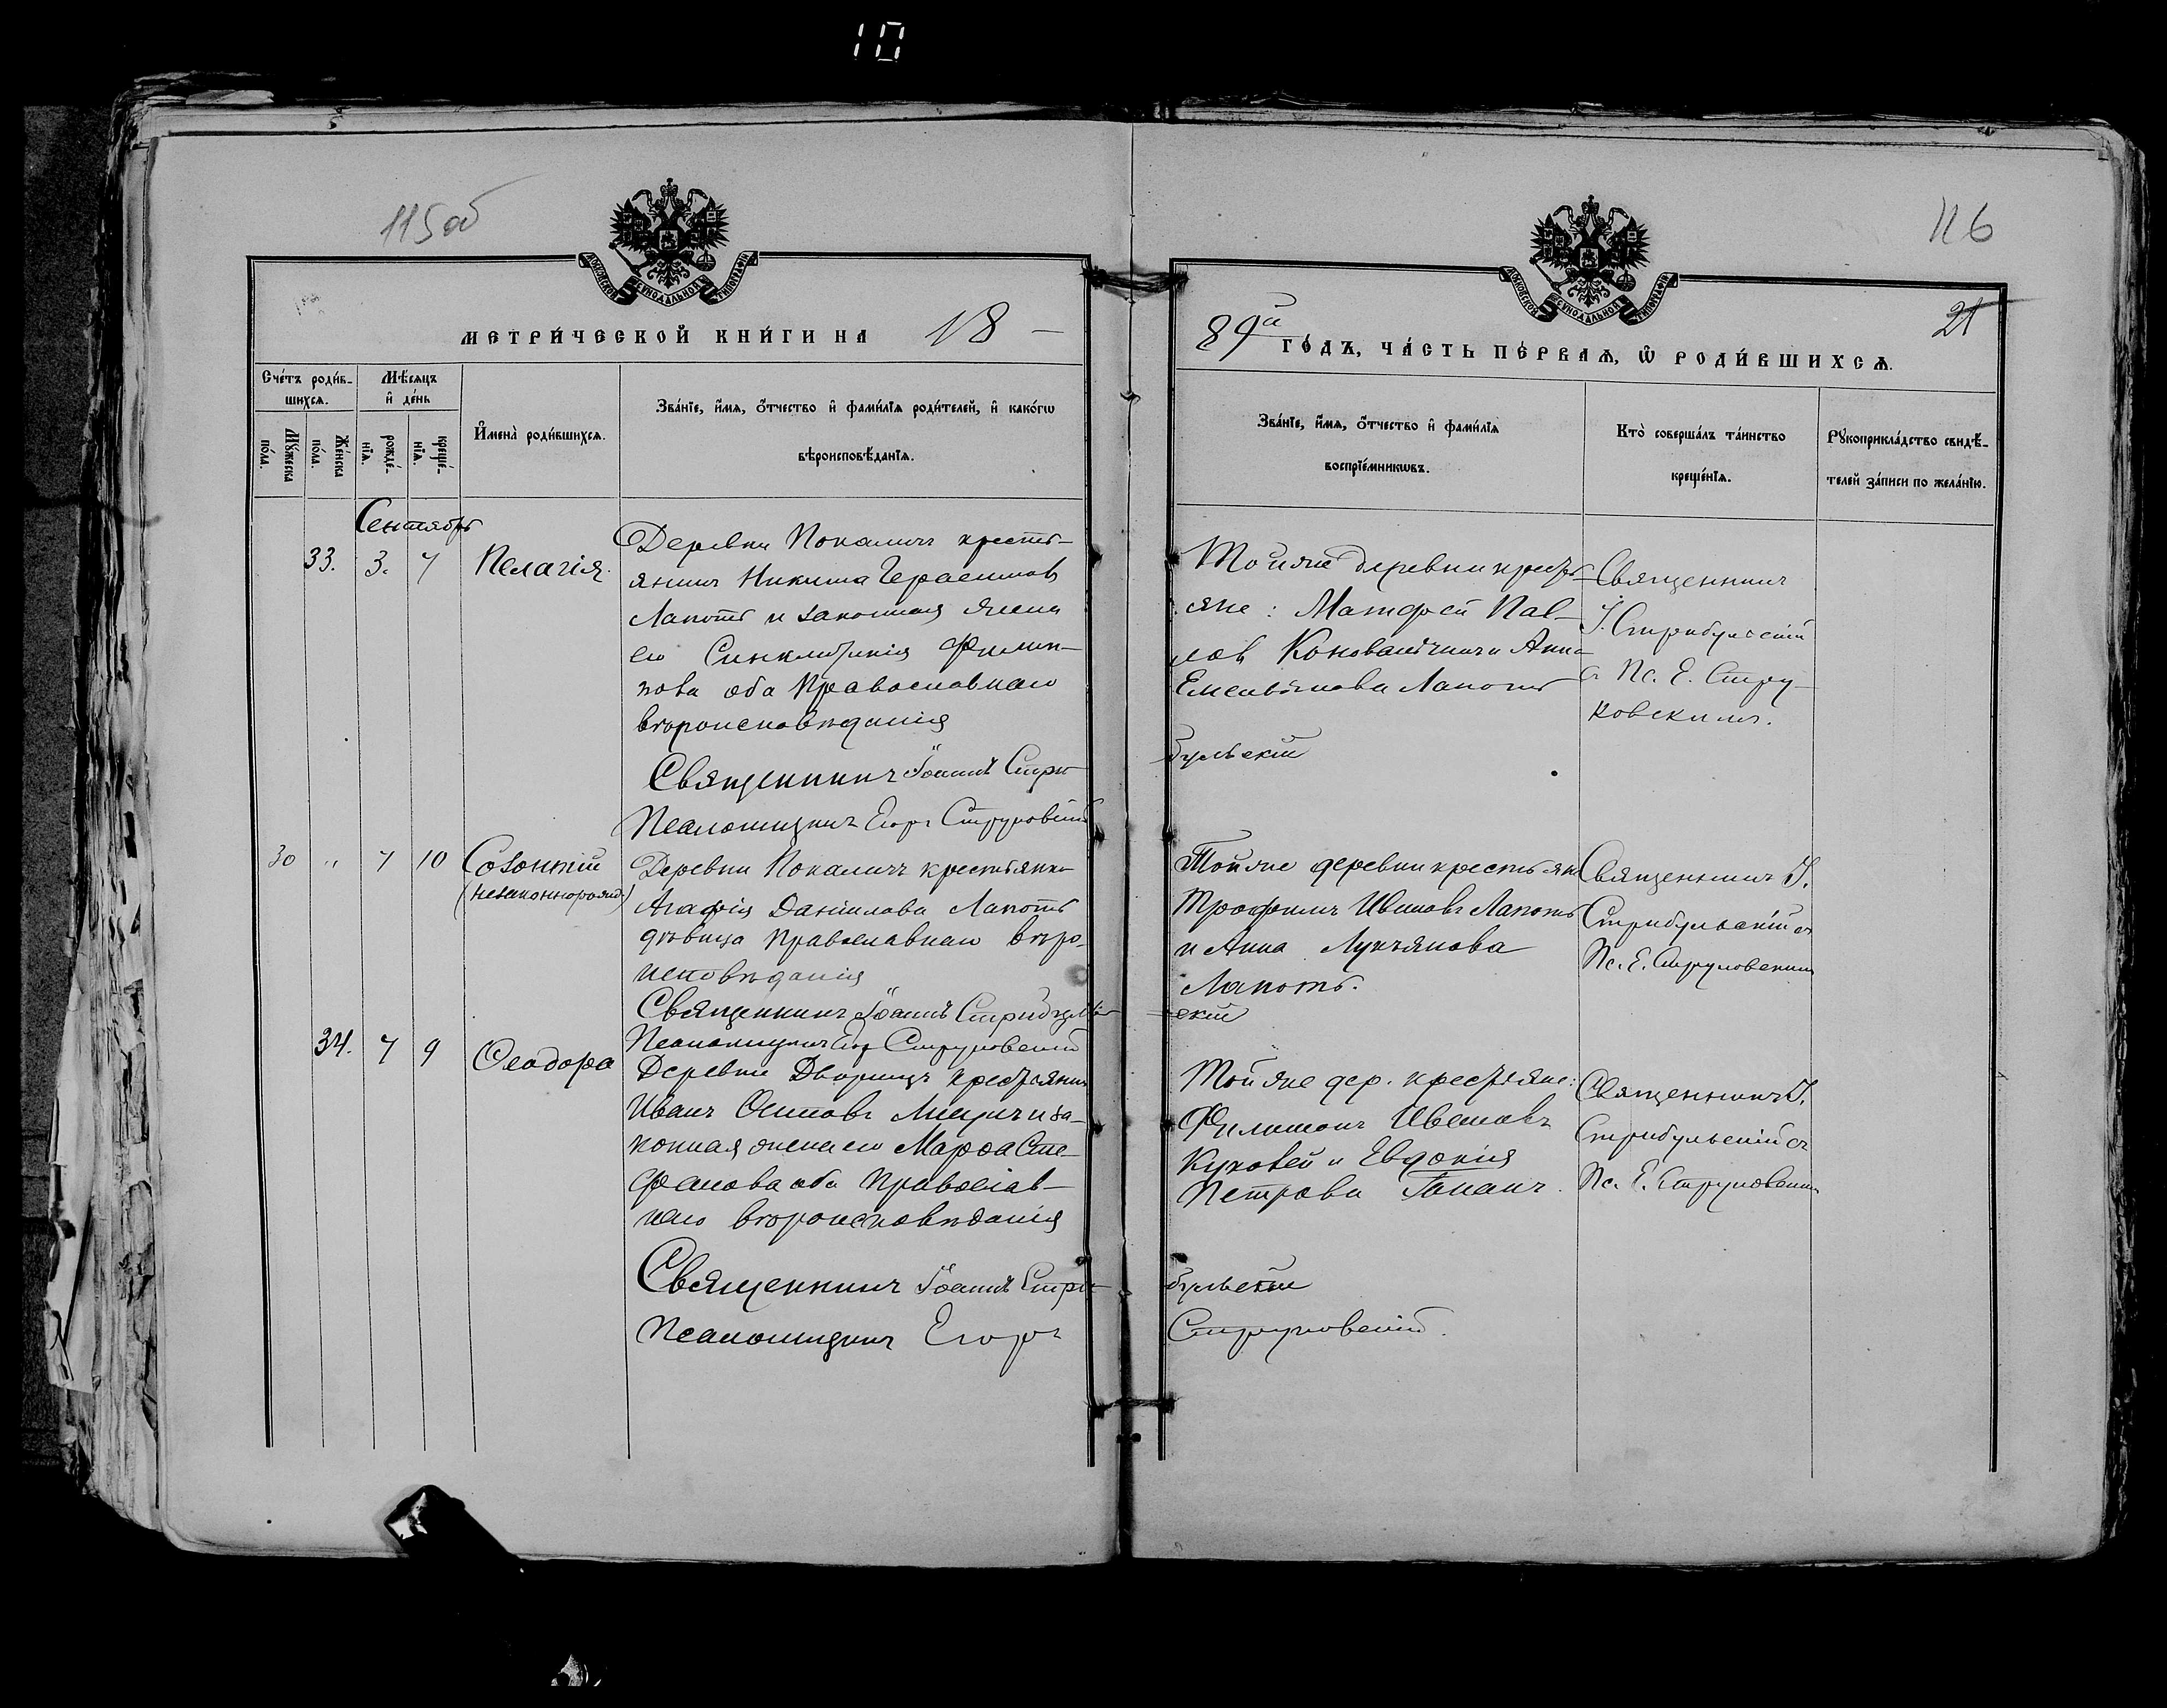 10
115об
116
МОСКОВСКОЙ СѴНОДАЛЬНОЙ ТИПОГРАФІИ
МОСКОВСКОЙ СѴНОДАЛЬНОЙ ТИПОГРАФІИ
21
МЕТРИ́ЧЕСКОЙ КНИ́ГИ НА 18
89й ГО́ДЪ, ЧА́СТЬ ПЕ́РВАѦ, Ѡ҆ РОДИ́ВШИХСѦ.
Сче́тъ роди́в-
шихсѧ.
Мꙋ́жеска по́ла.
Же́нска по́ла.
Мѣ́сѧцъ
и҆ де́нь
рожде́-
нїѧ.
креще́-
нїѧ.
И҆мена̀ роди́вшихсѧ.
Зва́нїе, и҆́мѧ, ѻ҆́тчество и҆ фами́лїѧ роди́телей, и҆ како́гѡ
вѣроисповѣ́данїѧ.
Зва́нїе, и҆́мѧ, ѻ҆́тчество и҆ фами́лїѧ
воспрїе́мникѡвъ.
Кто̀ соверша́лъ та́инство
креще́нїѧ.
Рꙋкоприкла́дство свидѣ́-
телей за́писи по жела́нїю.
Сентябрь
33. 3. 7 Пелагія.
Деревни Покаличъ кресть-
янинъ Никита Герасимовъ
Лапоть и законная жена
его Синклитикія Филип-
пова оба Православнаго
вѣроисповѣданія
Священникъ Іоаннъ Стри-
бульскій
Псаломщикъ Егоръ Струковскій
Той же деревни кресть-
яне: Матфей Пав-
ловъ и Анна
Емельянова Лапоть
Священникъ
І. Стрибульскій
съ Пс. Е. Стру-
ковскимъ.
30 " 7 10 Созонтій
(незаконнорожд.)
Деревни Покаличъ крестьянка
Агафія Даніилова Лапоть
дѣвица православнаго вѣро-
исповѣданія
Священникъ Іоаннъ Стрибуль-
скій
Псаломщикъ Егоръ Струковскій
Той же деревни крестьяне
Трофимъ Ивановъ Лапоть
и Анна Лукьянова
Лапоть.
Священникъ І.
Стрибульскій съ
Пс. Е. Струковскимъ
34. 7 9 Ѳеодора
Деревни Дворищъ крестьянинъ
Иванъ Осиповъ и за-
конная жена его Марѳа Сте-
фанова оба Православ-
наго вѣроисповѣданія
Священникъ Іоаннъ Стри-
бульскій
Псаломщикъ Егоръ
Струковскій.
Той же дер. крестьяне:
Филимонъ Ивановъ
и Евдокія
Петрова
Священникъ І.
Стрибульскій съ
Пс. Е. Струковскимъ